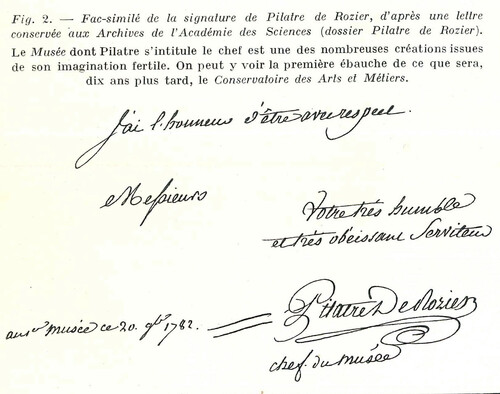 Fig. 2. — Fac-similé de la signature de Pilatre de Rozier, d'après une lettre
conservée aux Archives de l'Académie des Sciences (dossier Pilatre de Rozier).
Le Musée dont Pilatre s'intitule le chef est une des nombreuses créations issues
de son imagination fertile. On peut y voir la première ébauche de ce que sera,
dix ans plus tard, le Conservatoire des Arts et Métiers.
J'ai l'honneur d'être avec respect.
Messieurs
Votre très humble
et très obeissant Serviteur
Pilatre De Rozier
musée ce 20. 9bre 1782.
chef. du musée